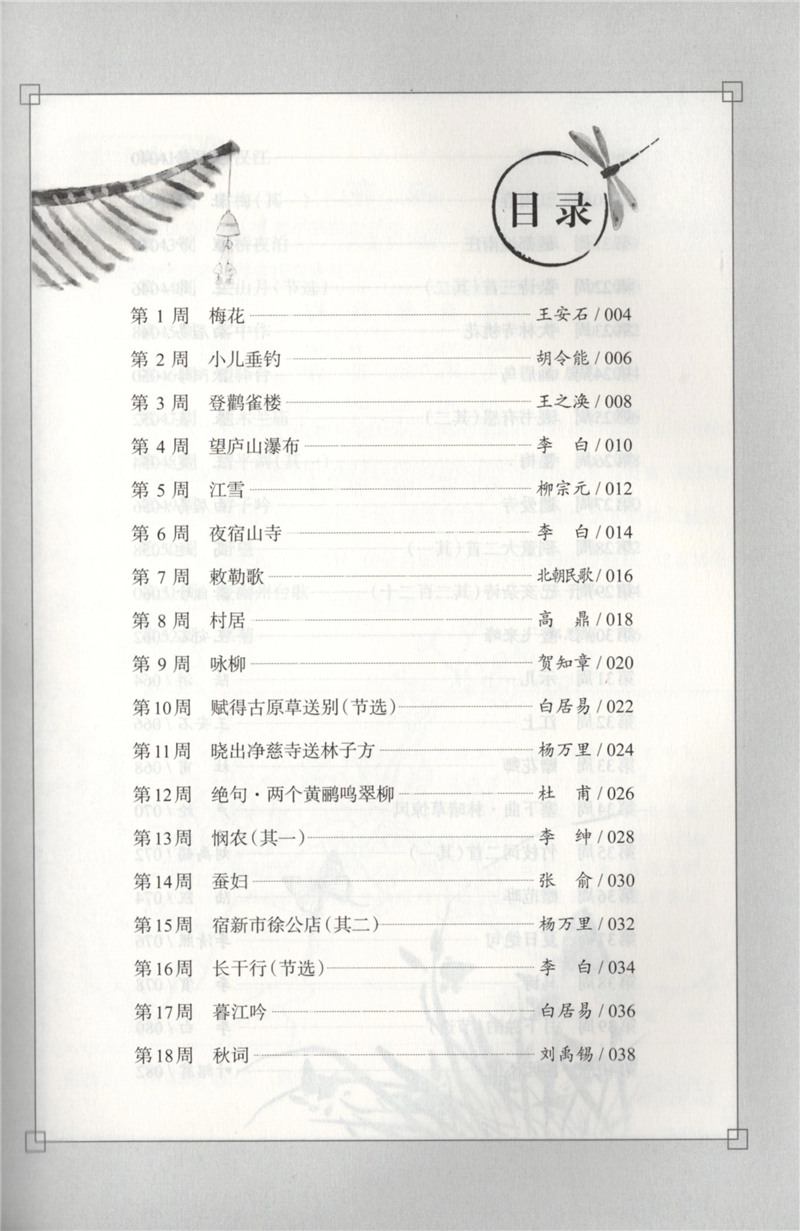 目录
第 1 周 梅花 王安石 / 004
第 2 周 小儿垂钓 胡令能 / 006
第 3 周 登鹳雀楼 王之涣 / 008
第 4 周 望庐山瀑布 李 白 / 010
第 5 周 江雪 柳宗元 / 012
第 6 周 夜宿山寺 李 白 / 014
第 7 周 敕勒歌 北朝民歌 / 016
第 8 周 村居 高 鼎 / 018
第 9 周 咏柳 贺知章 / 020
第10周 赋得古原草送别(节选) 白居易 / 022
第11周 晓出净慈寺送林子方 杨万里 / 024
第12周 绝句·两个黄鹂鸣翠柳 杜 甫 / 026
第13周 悯农(其一) 李 绅 / 028
第14周 蚕妇 张 俞 / 030
第15周 宿新市徐公店(其二) 杨万里 / 032
第16周 长干行(节选) 李 白 / 034
第17周 暮江吟 白居易 / 036
第18周 秋词 刘禹锡 / 038